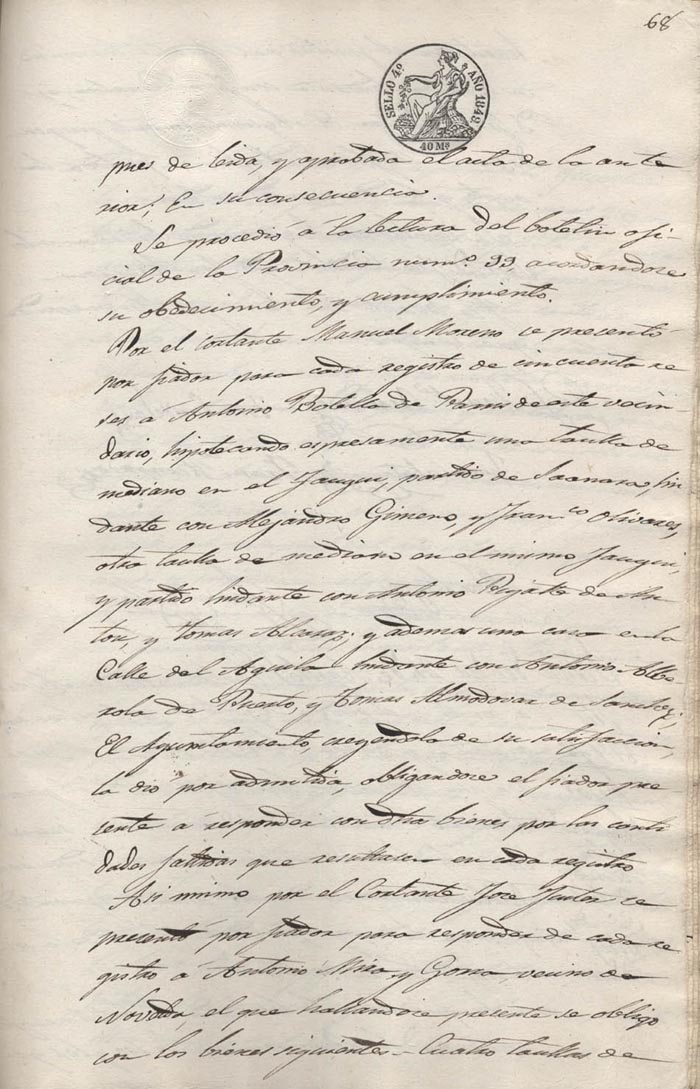 68
SELLO 4º AÑO 1848
40 Ms
pues de leida, y aprobada el acta de la ante
rior; En su consecuencia.
Se procedió á la lectura del boletin ofi-
cial de la Provincia numº 99, acordandose
su obedecimiento, y cumplimiento.
Por el Cortante Manuel Moreno se presentó
por fiador para cada registro de cincuenta re
ses á Antonio Botella de de este vecin-
dario, hipotecando espresamente una taulla de
mediano en el partido de lin
dante con Alejandro Gimeno, y Franco Olivares,
otra taulla de mediano en el mismo
y partido lindante con Antonio de An
ton, y Tomas Alcaraz; y ademas una casa en la
Calle del Aguila lindante con Antonio Albe
rola de Puerto, y Tomas Almodovar de Sanchez.
El Ayuntamiento, creyendola de su satisfaccion,
la dió por admitida, obligandose el fiador pre
sente á responder con otros bienes por las canti
dades fallidas que resultasen en cada registro
Asi mismo por el Cortante Jose se
presentó por fiador para responder de cada re
gistro á Antonio Mira y Gorra, vecino de
Novelda, el que hallandose presente se obligó
con los bienes siguientes = Cuatro taullas de